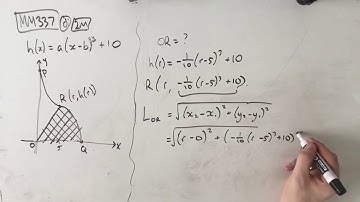 MM337 d 2M
h(x) = a(x-b)³ + 10
y
P
R(r, h(r))
O r 5 Q x
OR = ?
h(r) = -1/10 (r-5)³ + 10
R(r, -1/10 (r-5)³ + 10)
L_OR = √((x₂-x₁)² + (y₂-y₁)²)
= √((r-0)² + (-1/10 (r-5)³ + 10)